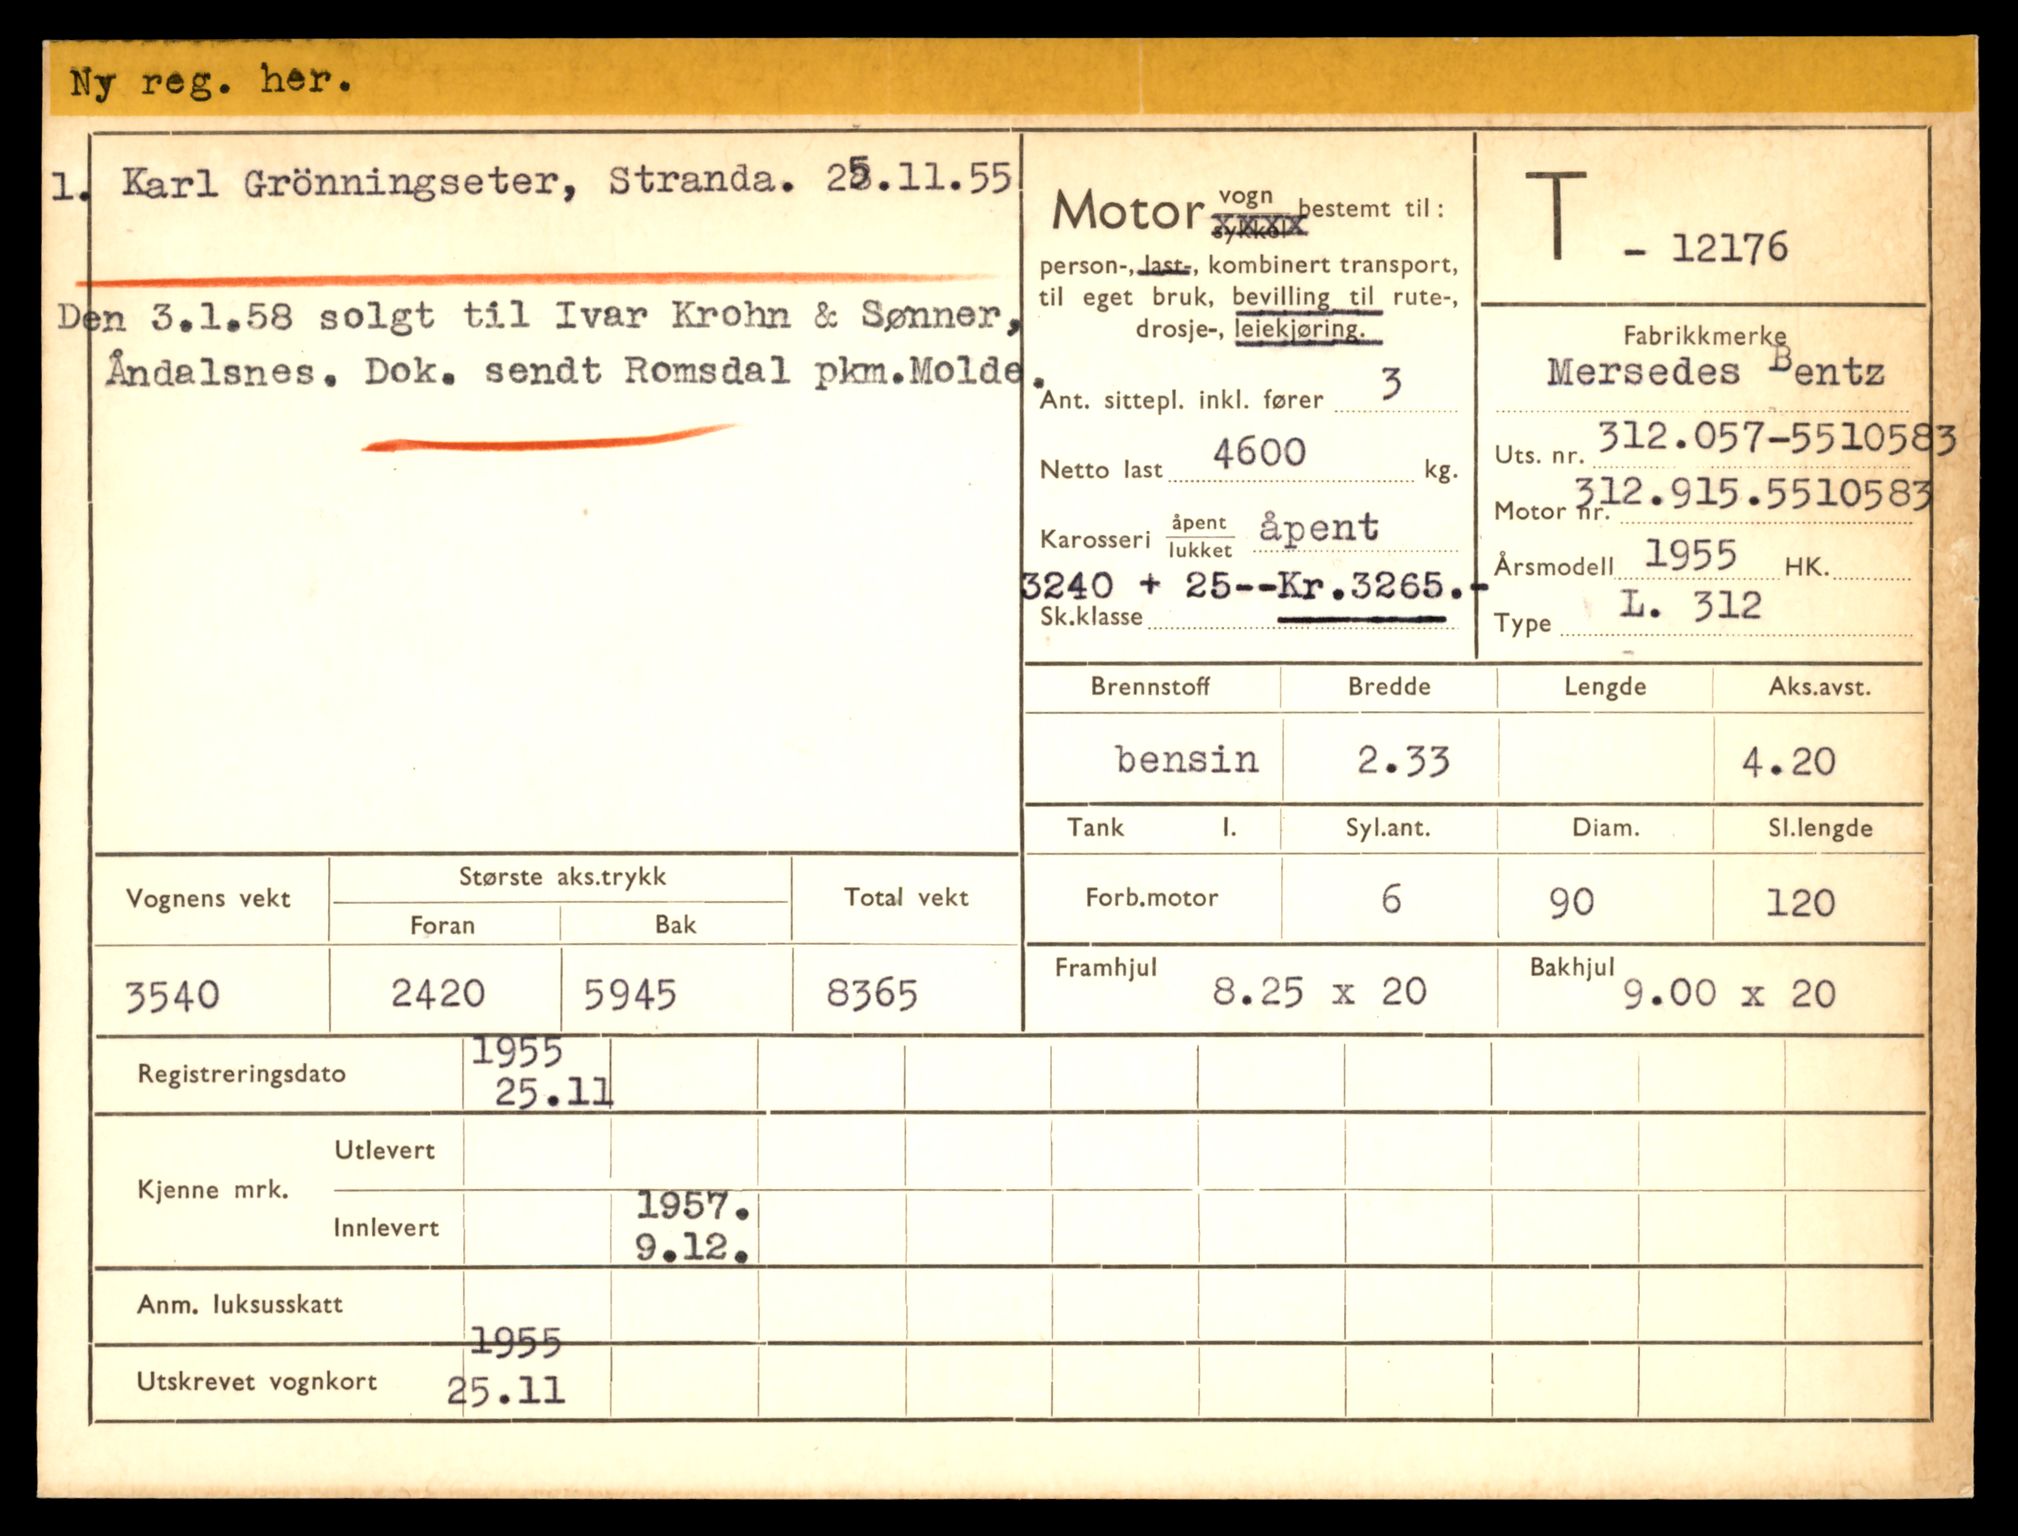 Ny reg. her.
1. Karl Grönningseter, Stranda. 25.11.55
Den 3.1.58 solgt til Ivar Krohn & Sønner,
Åndalsnes. Dok. sendt Romsdal pkm.Molde.
Motor vogn bestemt til:
sykkel
person-, last-, kombinert transport,
til eget bruk, bevilling til rute-,
drosje-, leiekjøring.
Ant. sittepl. inkl. fører 3
Netto last 4600 kg.
Karosseri åpent/lukket åpent
3240 + 25--Kr.3265.-
Sk.klasse
T - 12176
Fabrikkmerke
Mersedes Bentz
Uts. nr. 312.057-5510583
Motor nr. 312.915.5510583
Årsmodell 1955 HK.
Type L. 312
Brennstoff Bredde Lengde Aks.avst.
bensin 2.33 4.20
Tank l. Syl.ant. Diam. Sl.lengde
Forb.motor 6 90 120
Framhjul 8.25 x 20 Bakhjul 9.00 x 20
Vognens vekt Største aks.trykk Total vekt
Foran Bak
3540 2420 5945 8365
Registreringsdato 1955
25.11
Kjenne mrk. Utlevert
Innlevert 1957.
9.12.
Anm. luksusskatt
1955
Utskrevet vognkort 25.11